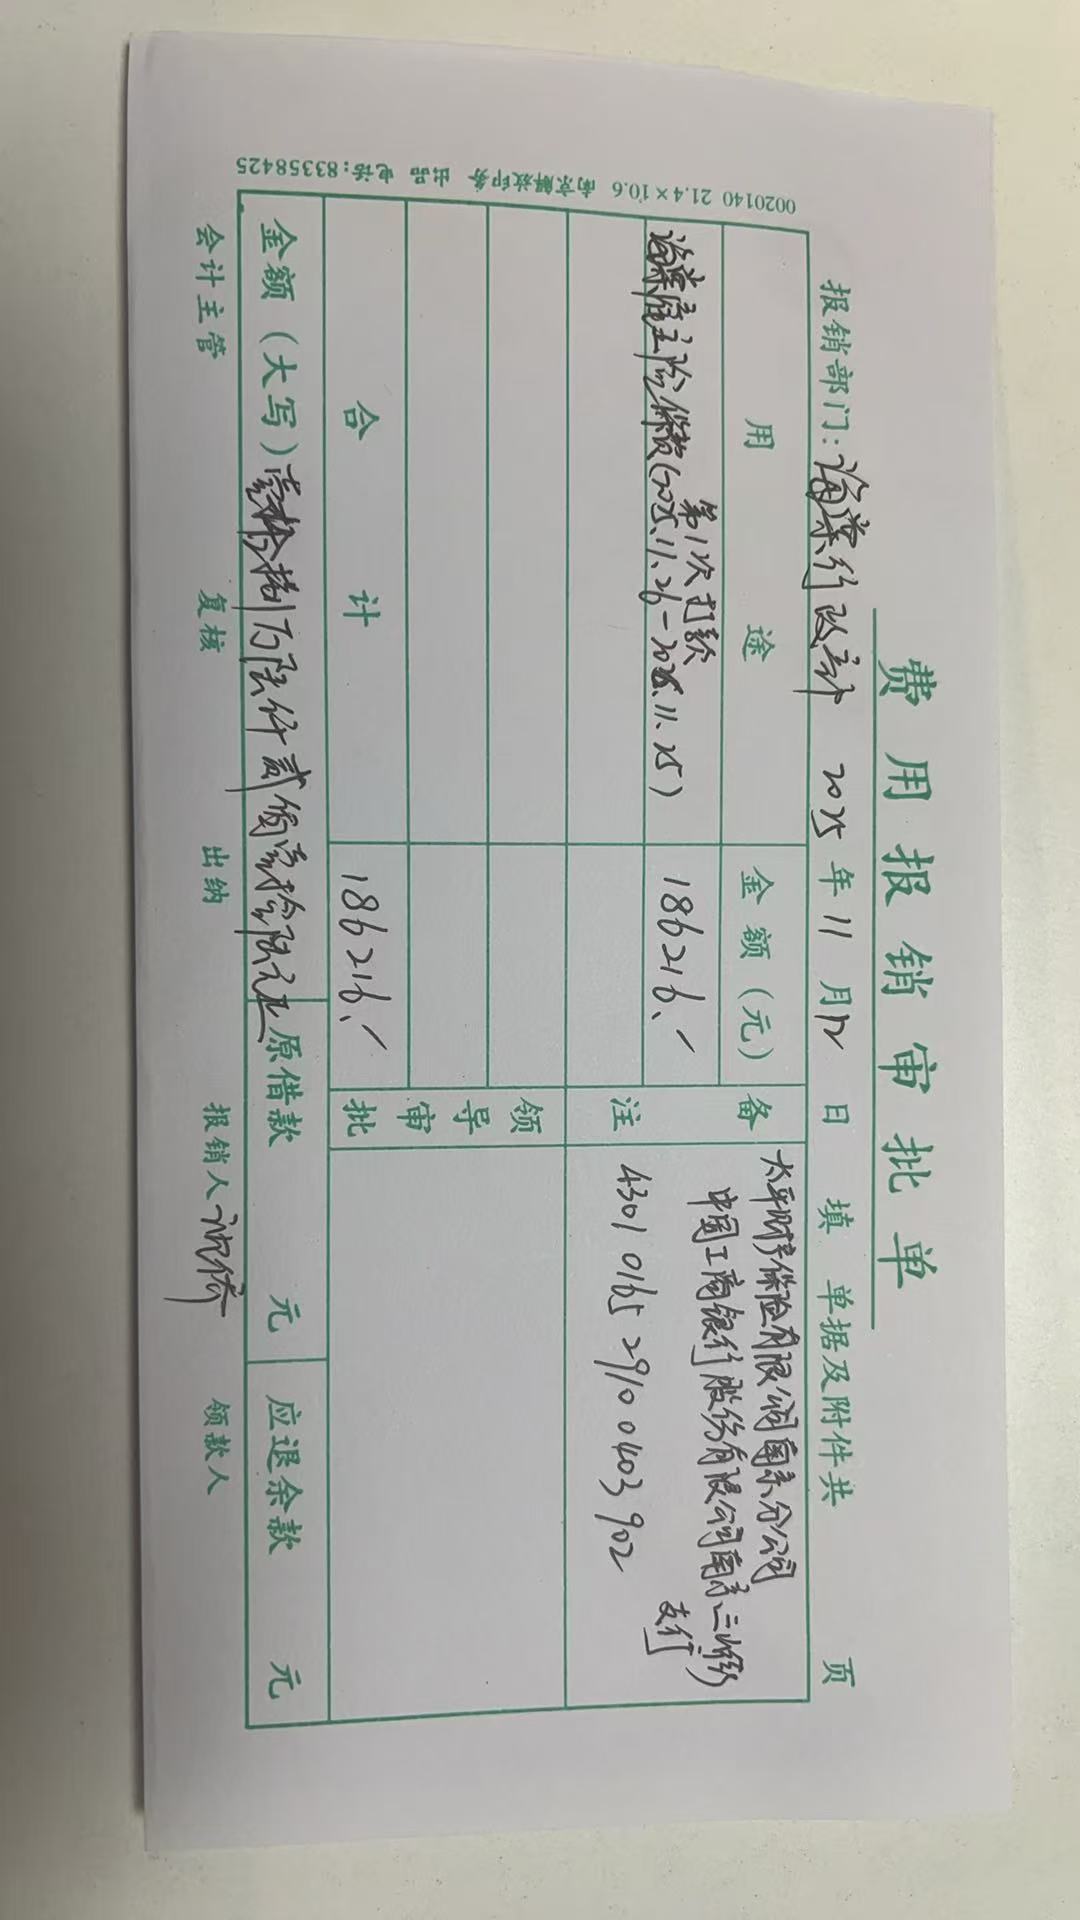 费用报销审批单
报销部门：海棠行政部 2025年11月12日 填 单据及附件共 页
用途 金额（元） 备注
第1次打款
海棠雇主险保费（2025.11.26-2026.11.25） 186216.
太平财产保险有限公司南京分公司
中国工商银行股份有限公司南京三山街
支行
4301 0165 2910 0403 902
合计 186216. 领导审批
金额（大写）壹拾捌万陆仟贰佰壹拾陆元正 原借款 元 应退余款 元
会计主管 复核 出纳 报销人 领款人
0020140 21.4×10.6 南京解放印务 出品 电话：83358425